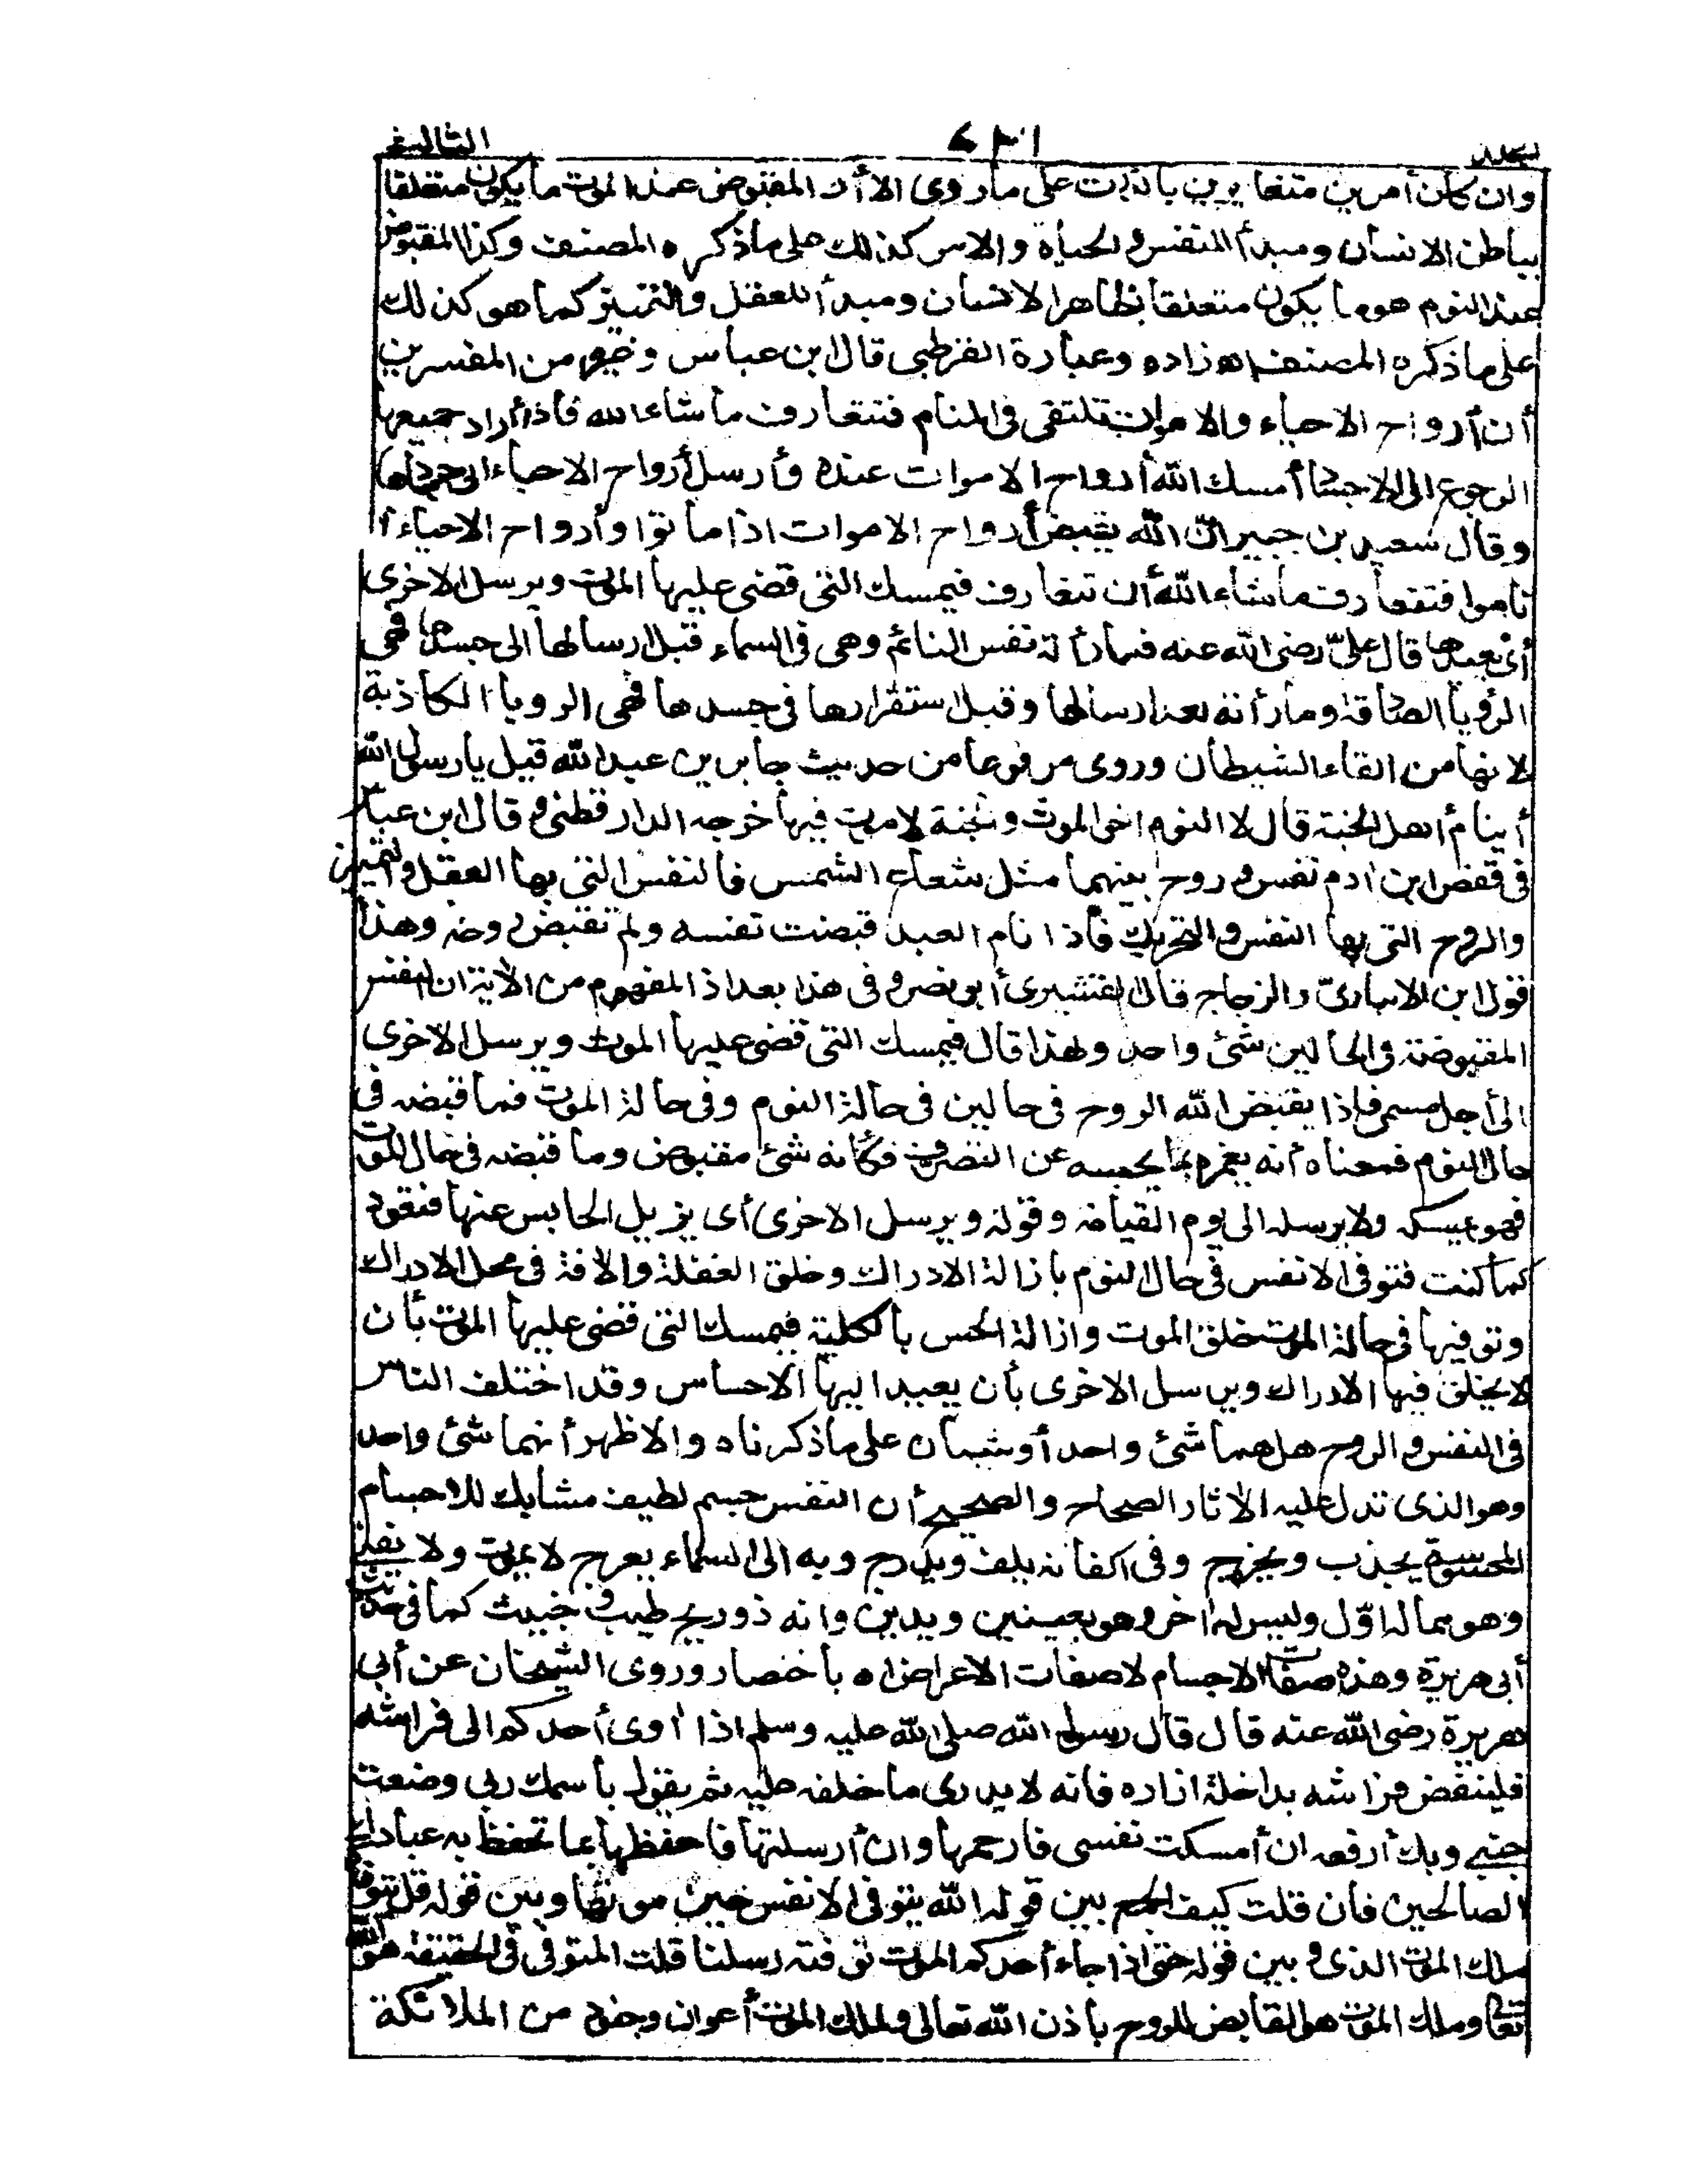 الثالث
وان كان أمرين متغايرين بالذات على ما روى الا أن المقبوض عند الموت ما يكون متعلقا
بباطن الانسان ومبدأ للنفس والحياة والامر كذلك على ما ذكره المصنف وكذا المقبوض
عند النوم هو ما يكون متعلقا بظاهر الانسان ومبدأ للعقل والتمييز كما هو كذلك
على ما ذكره المصنف اه زاده وعبارة القرطبى قال ابن عباس وغيره من المفسرين
أن أرواح الاحياء والاموات تلتقى فى المنام فتتعارف ما شاء الله فاذا أراد جميعها
الرجوع الى الاجساد أمسك الله أرواح الاموات عنده وأرسل أرواح الاحياء الى أجسادها
وقال سعيد بن جبير ان الله يقبض أرواح الاموات اذا ماتوا وأرواح الاحياء اذا
ناموا فتتعارف ما شاء الله أن تتعارف فيمسك التى قضى عليها الموت ويرسل الاخرى
أى يعيدها قال على رضى الله عنه فما رأته نفس النائم وهى فى السماء قبل ارسالها الى جسدها فهى
الرؤيا الصادقة وما رأته بعد ارسالها وقبل استقرارها فى جسدها فهى الرويا الكاذبة
لانها من القاء الشيطان وروى مرفوعا من حديث جابر بن عبد الله قيل يا رسول الله
أينام أهل الجنة قال لا النوم اخى الموت والجنة لا موت فيها خرجه الدارقطنى وقال ابن عباس
فى ابن ادم نفس وروح بينهما مثل شعاع الشمس فالنفس التى بها العقل والتمييز
والروح التى بها النفس والتحريك فاذا نام العبد قبضت نفسه ولم تقبض روحه وهذا
قول ابن الانبارى والزجاج قال القشيرى أبو نصر وفى هذا بعد اذ المفهوم من الآية ان النفس
المقبوضة فى الحالين شئ واحد ولهذا قال فيمسك التى قضى عليها الموت ويرسل الاخرى
الى أجل مسمى فاذا يقبض الله الروح فى حالين فى حالة النوم وفى حالة الموت فما قبضه فى
حال النوم فمعناه أنه يغمره بما يحبسه عن التصرف فكأنه شئ مقبوض وما قبضه فى حال الموت
فهو يمسكه ولا يرسله الى يوم القيامة وقوله ويرسل الاخرى أى يزيل الحابس عنها فتعود
كما كنت فتوفى الانفس فى حال النوم بازالة الادراك وخلق الغفلة والآفة فى محل الادراك
وتوفيها فى حالة الموت بخلق الموت وازالة الحس بالكلية فيمسك التى قضى عليها الموت بأن
لا يخلق فيها الادراك ويرسل الاخرى بأن يعيد اليها الاحساس وقد اختلف الناس
فى النفس والروح هل هما شئ واحد أو شيئان على ما ذكرناه والاظهر أنهما شئ واحد
وهو الذى تدل عليه الآثار الصحاح والصحيح أن النفس جسم لطيف مشابك للاجسام
المحسوسة يجذب ويخرج وفى اكفانه يلف ويدرج وبه الى السماء يعرج لا يموت ولا يفنى
وهو مما له اوّل وليس له اخر وهو بعينين ويدين وانه ذو ريح طيب وخبيث كما فى حديث
أبى هريرة وهذه صفات الاجسام لا صفات الاعراض اه باختصار وروى الشيخان عن أبى
هريرة رضى الله عنه قال قال رسول الله صلى الله عليه وسلم اذا اوى أحدكم الى فراشه
فلينفض فراشه بداخلة ازاره فانه لا يدرى ما خلفه عليه ثم يقول باسمك ربى وضعت
جنبى وبك أرفعه ان أمسكت نفسى فارحمها وان أرسلتها فاحفظها بما تحفظ به عبادك
الصالحين فان قلت كيف الجمع بين قوله الله يتوفى الانفس حين موتها وبين قوله قل يتوفاكم
ملك الموت الذى وبين قوله حتى اذا جاء أحدكم الموت توفته رسلنا قلت المتوفى فى الحقيقة هو الله
تعالى وملك الموت هو القابض للروح باذن الله تعالى ولملك الموت أعوان وجنود من الملائكة